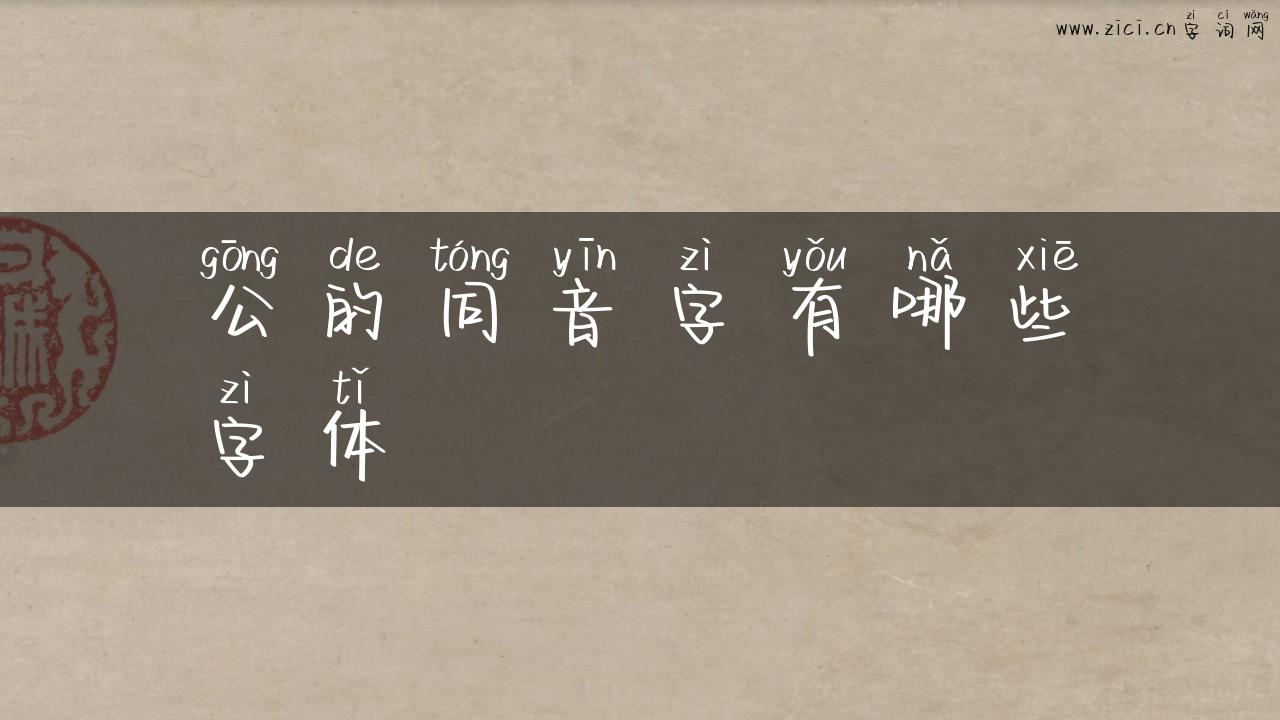 www.zici.cn zì cí wǎng
字词网
gōng de tóng yīn zì yǒu nǎ xiē
公的同音字有哪些
zì tǐ
字体